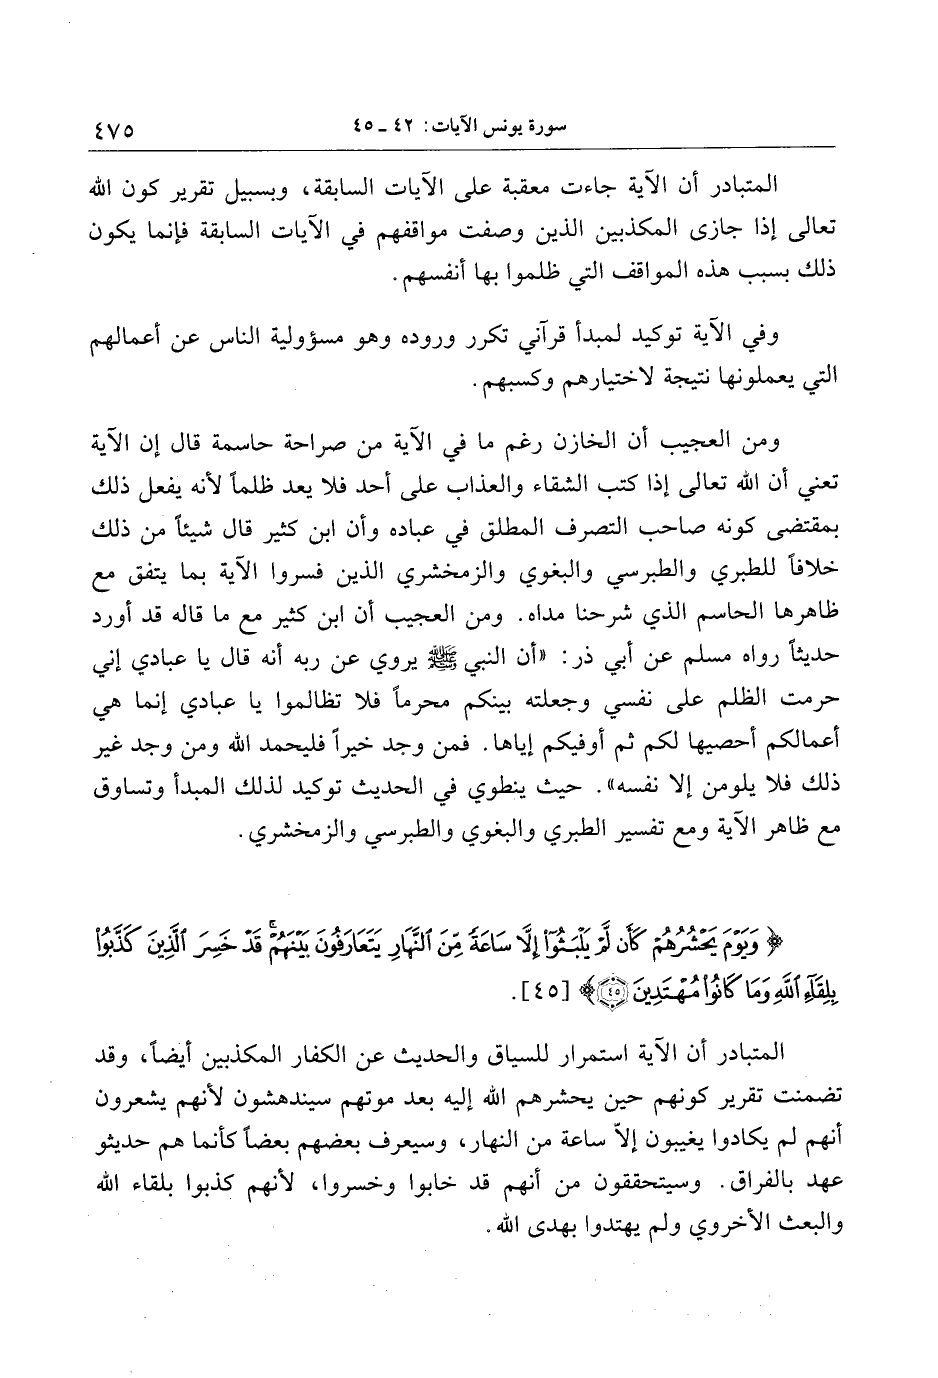 سورة يونس الآيات: ٤٢ ـ ٤٥
٤٧٥
المتبادر أن الآية جاءت معقبة على الآيات السابقة، وبسبيل تقرير كون الله
تعالى إذا جازى المكذبين الذين وصفت مواقفهم في الآيات السابقة فإنما يكون
ذلك بسبب هذه المواقف التي ظلموا بها أنفسهم.
وفي الآية توكيد لمبدأ قرآني تكرر وروده وهو مسؤولية الناس عن أعمالهم
التي يعملونها نتيجة لاختيارهم وكسبهم.
ومن العجيب أن الخازن رغم ما في الآية من صراحة حاسمة قال إن الآية
تعني أن الله تعالى إذا كتب الشقاء والعذاب على أحد فلا يعد ظلماً لأنه يفعل ذلك
بمقتضى كونه صاحب التصرف المطلق في عباده وأن ابن كثير قال شيئاً من ذلك
خلافاً للطبري والطبرسي والبغوي والزمخشري الذين فسروا الآية بما يتفق مع
ظاهرها الحاسم الذي شرحنا مداه. ومن العجيب أن ابن كثير مع ما قاله قد أورد
حديثاً رواه مسلم عن أبي ذر: «أن النبي ﷺ يروي عن ربه أنه قال يا عبادي إني
حرمت الظلم على نفسي وجعلته بينكم محرماً فلا تظالموا يا عبادي إنما هي
أعمالكم أحصيها لكم ثم أوفيكم إياها. فمن وجد خيراً فليحمد الله ومن وجد غير
ذلك فلا يلومن إلا نفسه». حيث ينطوي في الحديث توكيد لذلك المبدأ وتساوق
مع ظاهر الآية ومع تفسير الطبري والبغوي والطبرسي والزمخشري.
﴿ وَيَوْمَ يَحْشُرُهُمْ كَأَن لَّمْ يَلْبَثُوٓا۟ إِلَّا سَاعَةً مِّنَ ٱلنَّهَارِ يَتَعَارَفُونَ بَيْنَهُمْ ۚ قَدْ خَسِرَ ٱلَّذِينَ كَذَّبُوا۟
بِلِقَآءِ ٱللَّهِ وَمَا كَانُوا۟ مُهْتَدِينَ ٤٥﴾ [٤٥].
المتبادر أن الآية استمرار للسياق والحديث عن الكفار المكذبين أيضاً، وقد
تضمنت تقرير كونهم حين يحشرهم الله إليه بعد موتهم سيندهشون لأنهم يشعرون
أنهم لم يكادوا يغيبون إلاّ ساعة من النهار، وسيعرف بعضهم بعضاً كأنما هم حديثو
عهد بالفراق. وسيتحققون من أنهم قد خابوا وخسروا، لأنهم كذبوا بلقاء الله
والبعث الأخروي ولم يهتدوا بهدى الله.